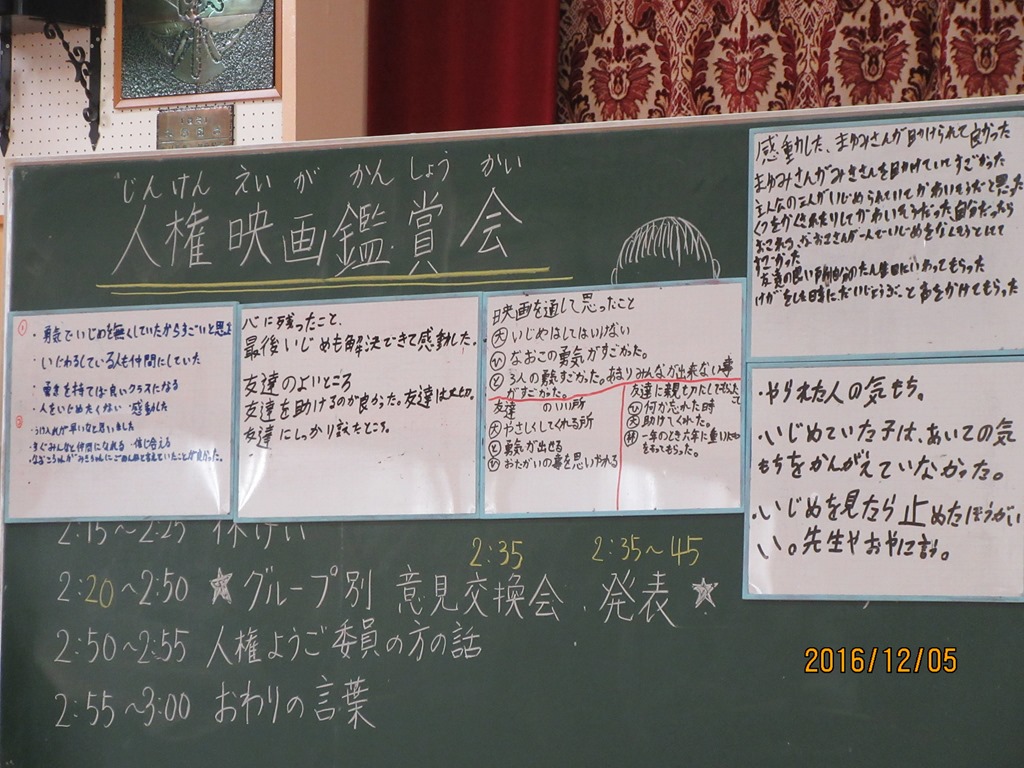 じんけん えい が かんしょう かい
人権映画鑑賞会
・勇気でいじめを無くしていたからすごいと思
・いじわるしている人も仲間にしていた
・勇気を持てば良いクラスになる
・人をいじめたくない 感動した
・うけ入れが早いなと思いました
・すぐみんなと仲間になれる
心に残ったこと、
最後いじめも解決できて感動した。
友達のよいところ
友達を助けるのが良かった。友達は大切。
友達にしっかり
映画を通して思ったこと
大 いじめはしてはいけない
ひ なおこの勇気がすごかった。
と 3人の勇気すごかった。あまりみんなが出来ない事
がすごかった。
友達 のいい所
大 やさしくしてくれる所
と 勇気が出せる
ひ おたがいの事を思いやれる
友達に親切にしてもらったこと
ひ 何か忘れた時
大 助けてくれた。
林 一年のとき六年に
をもってもらった。
感動した、まゆみさんが助けられて良かった
まゆみさんがみきさんを助けていてすごかった
主人公の二人がいじめられていてかわいそうだと思った
くつをかくされたりしてかわいそうだった 自分だったら
すごかった
友達の良い所自分のたん生日にいわってもらった
けがをした時にだいじょうぶ?と声をかけてもらった
・やられた人の気もち。
・いじめていた子は、あいての気
もちをかんがえていなかった。
・いじめを見たら止めたほうがい
い。先生やおやに話す。
2:15〜2:25 休けい
2:35 2:35〜45
2:20〜2:50 ★グループ別 意見交換会、発表★
2:50〜2:55 人権ようご委員の方の話
2:55〜3:00 おわりの言葉
2016/12/05